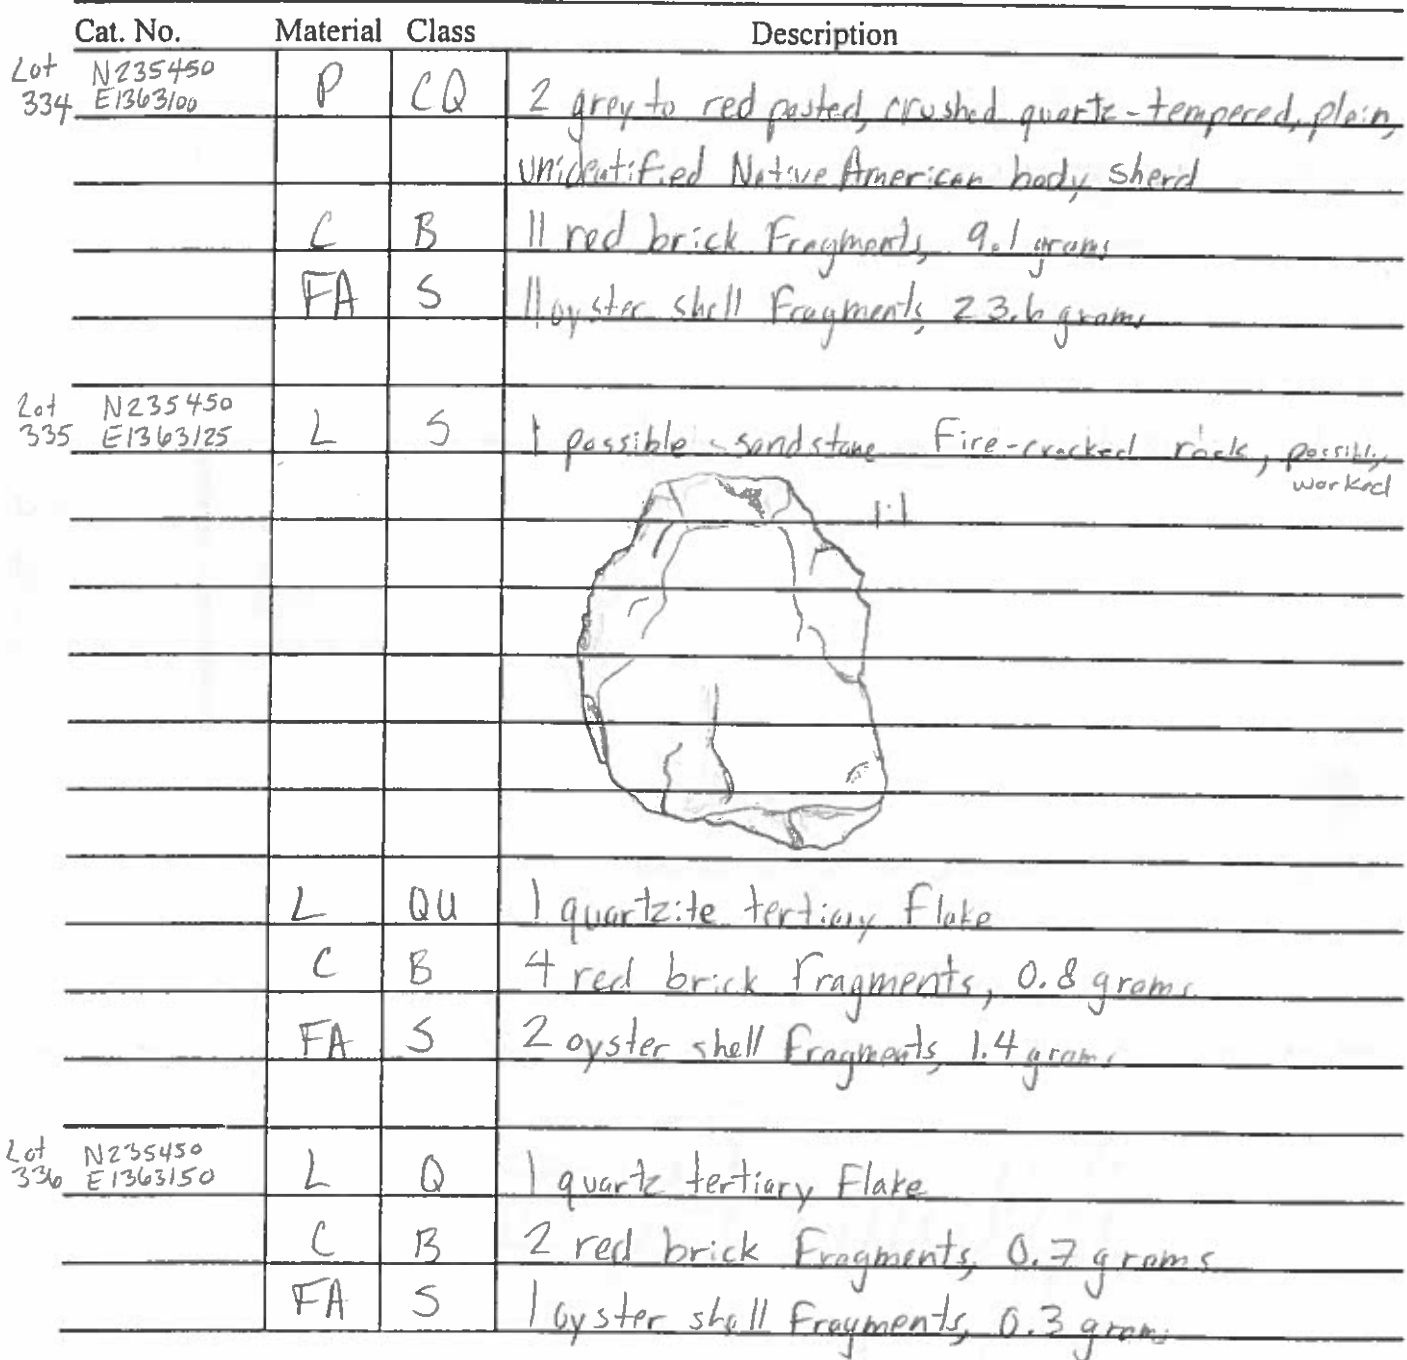 Cat. No. Material Class Description
Lot 334 N235450 E1363100 P CQ 2 grey to red pasted, crushed quartz-tempered, plain,
unidentified Native American body sherd
C B 11 red brick Fragments, 9.1 grams
FA S 11 oyster shell Fragments, 23.6 grams
Lot 335 N235450 E1363125 L S 1 possible sandstone Fire-cracked rock, possibly
worked
1:1
L QU 1 quartzite tertiary Flake
C B 4 red brick Fragments, 0.8 grams
FA S 2 oyster shell Fragments, 1.4 grams
Lot 336 N235450 E1363150 L Q 1 quartz tertiary Flake
C B 2 red brick Fragments, 0.7 grams
FA S 1 oyster shell Fragments, 0.3 grams